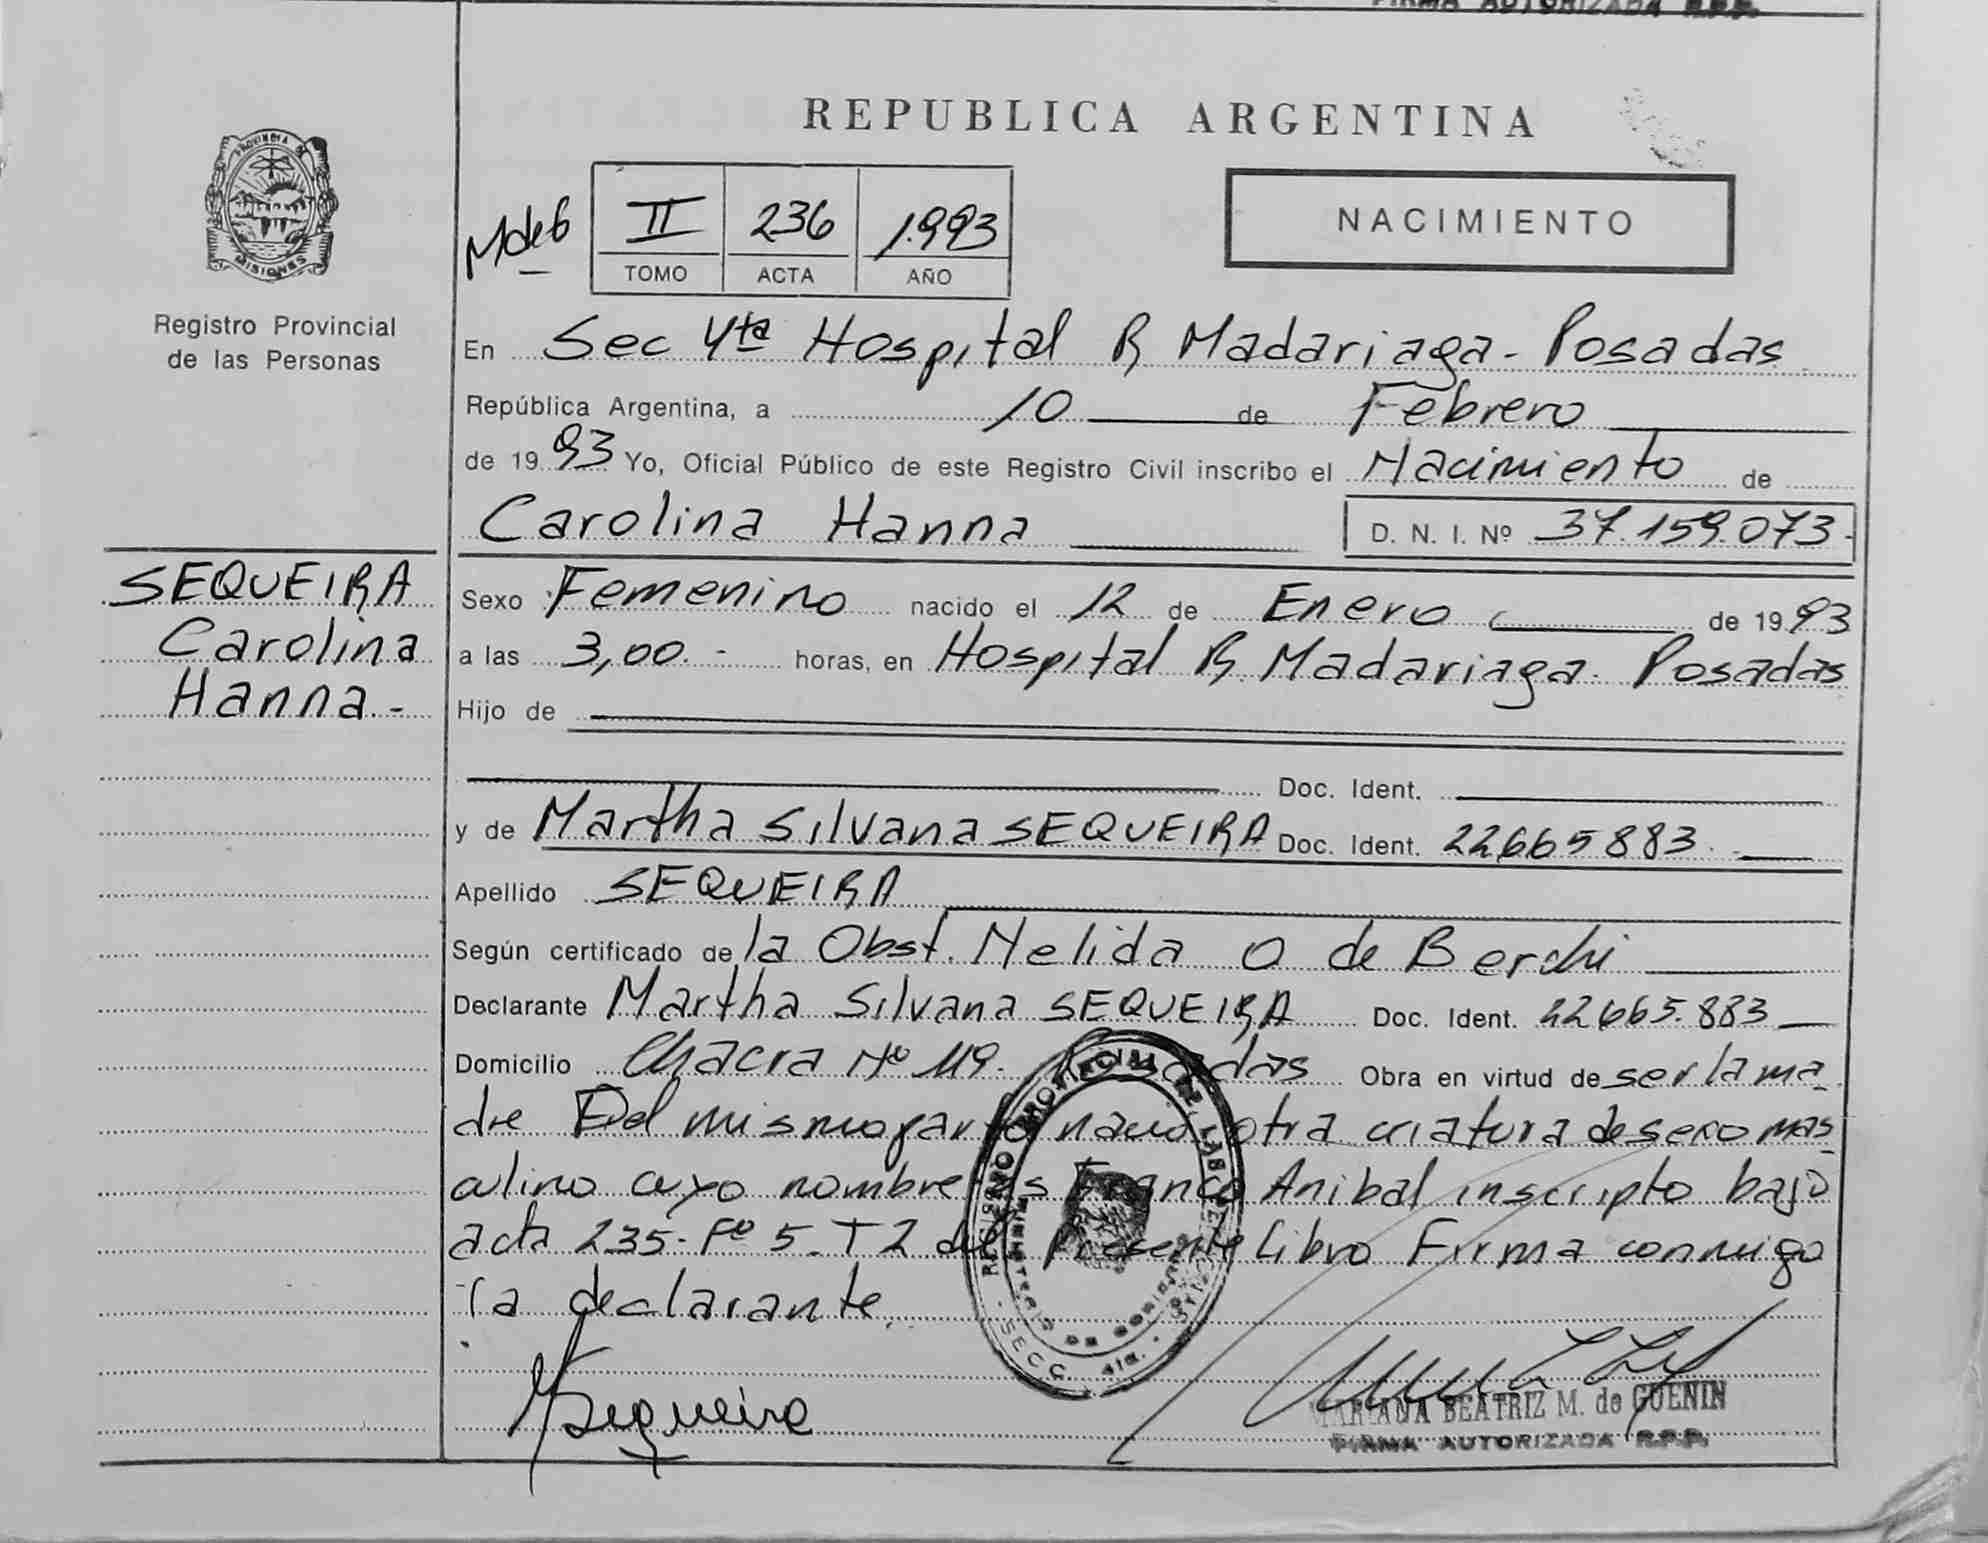 FIRMA AUTORIZADA R.P.P.
REPUBLICA ARGENTINA
PROVINCIA DE
MISIONES
Registro Provincial
de las Personas
II 236 1.993
TOMO ACTA AÑO
NACIMIENTO
En Sec 4ta Hospital R Madariaga - Posadas
República Argentina, a 10 de Febrero
de 1993 Yo, Oficial Público de este Registro Civil inscribo el Nacimiento de
Carolina Hanna D. N. I. Nº 37.159.073.-
SEQUEIRA
Carolina
Hanna.-
Sexo Femenino nacido el 12 de Enero de 1993
a las 3,00.- horas, en Hospital R. Madariaga. Posadas
Hijo de
Doc. Ident.
y de Martha Silvana SEQUEIRA Doc. Ident. 22665883.
Apellido SEQUEIRA
Según certificado de la Obst. Nelida O de Berchi
Declarante Martha Silvana SEQUEIRA Doc. Ident. 22665.883
Domicilio Chacra Nº 119. Posadas Obra en virtud de ser la ma
dre Del mismo parto nacio otra criatura de sexo mas
culino cuyo nombre es Franco Anibal inscripto bajo
acta 235- Fº 5- T 2 del Presente Libro Firma conmigo
la declarante
REGISTRO PROVINCIAL DE LAS PERSONAS
MINISTERIO DE GOBIERNO
SECC. 4ta.
MSequeira
MARIANA BEATRIZ M. de GUENIN
FIRMA AUTORIZADA R.P.P.